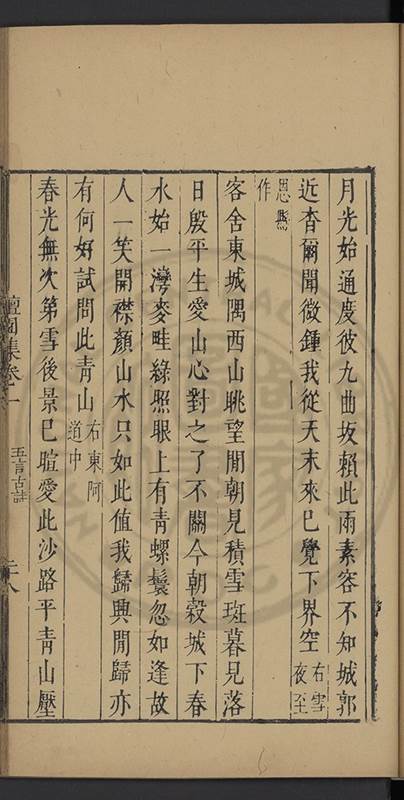 月光始通度彼九曲坂賴此雨素客不知城郭
近杳爾聞微鍾我從天末來已覺下界空右雪夜至
恩縣作
客舍東城隅西山眺望閒朝見積雪斑暮見落
日殷平生愛山心對之了不關今朝穀城下春
水始一灣麥畦綠照眼上有青螺鬟忽如逢故
人一笑開襟顏山水只如此值我歸興閒歸亦
有何好試問此青山右東阿道中
春光無次第雪後景已暄愛此沙路平青山壓
集卷一
五言古詩
二八